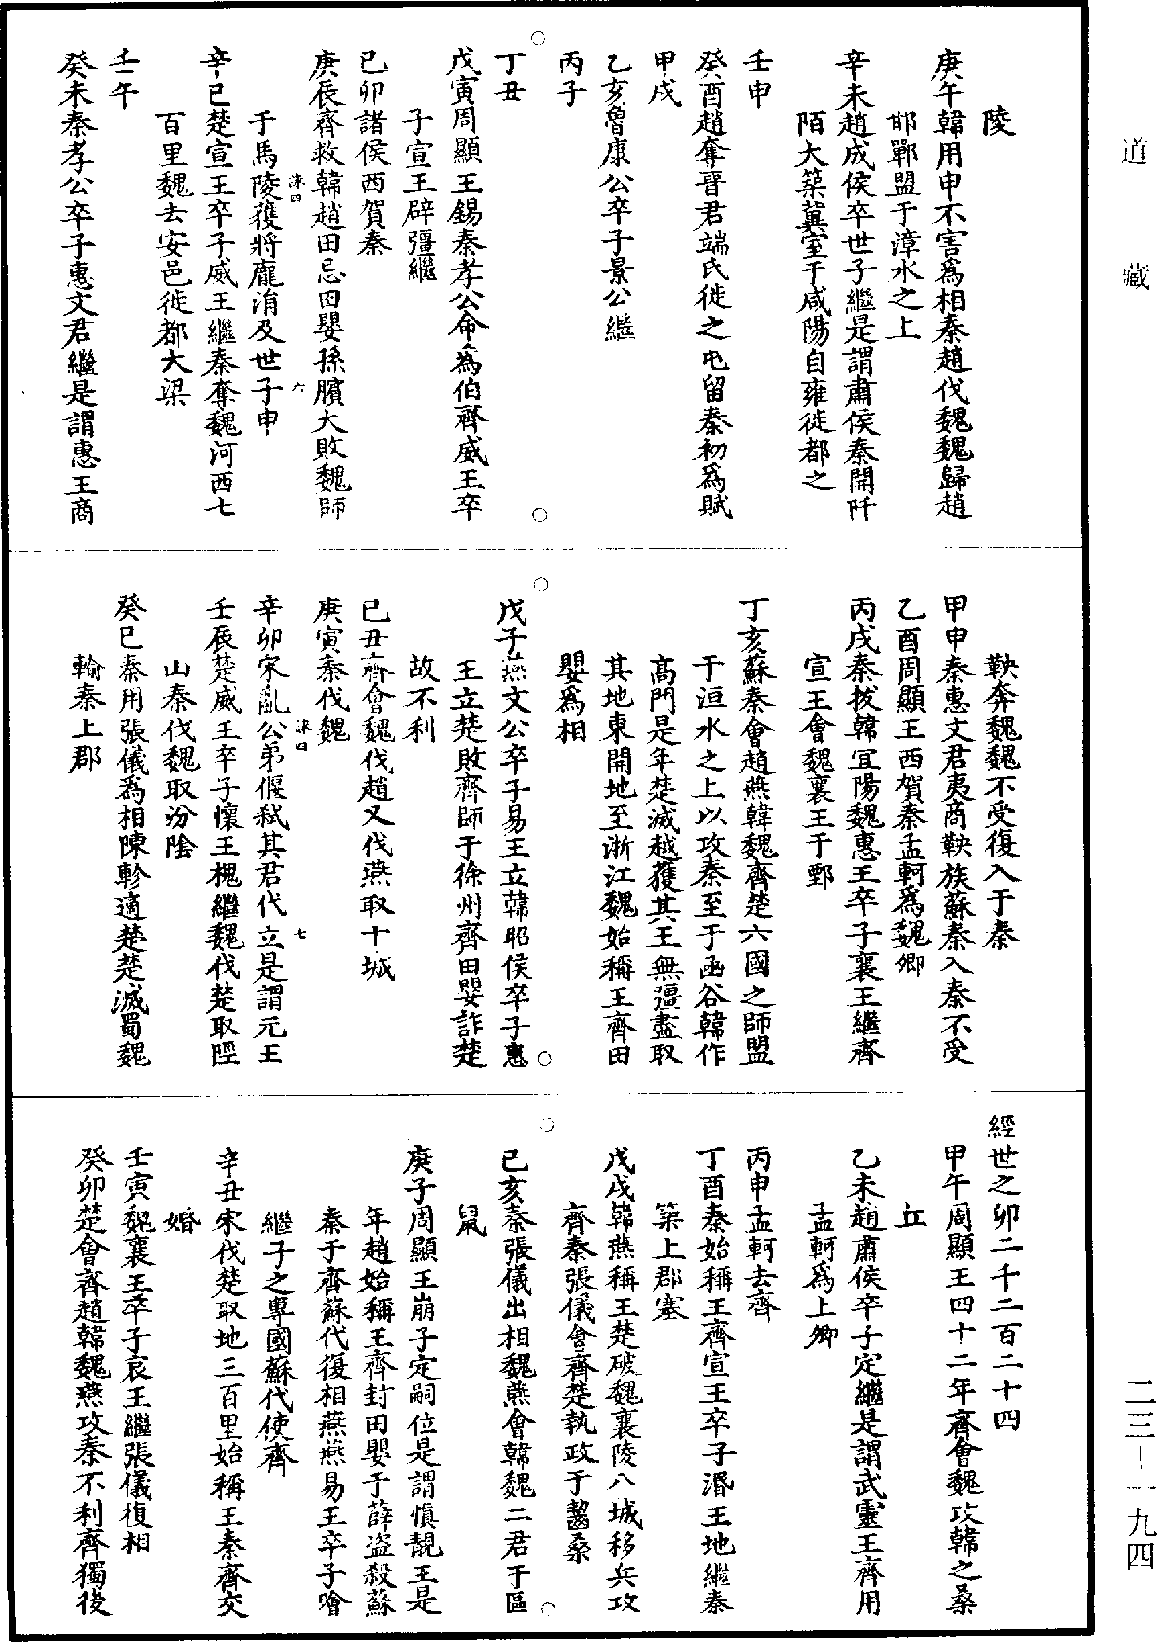 道藏
陵
庚午韓用申不害爲相秦趙伐魏魏歸趙
邯鄲盟于漳水之上
辛未趙成侯卒世子繼是謂肅侯秦開阡
陌大築冀室于咸陽自雍徙都之
壬申
癸酉趙奪晋君端氏徙之屯留秦初爲賦
甲戌
乙亥魯康公卒子景公繼
丙子
丁丑
戊寅周顯王錫秦孝公命爲伯齊威王卒
子宣王辟彊繼
已卯諸侯西賀秦
庚辰齊救韓趙田忌田嬰孫臏大敗魏師
洙四
六
于馬陵獲將龐涓及世子申
辛已楚宣王卒子威王繼秦奪魏河西七
百里魏去安邑徙都大梁
壬午
癸未秦孝公卒子惠文君繼是謂惠王商
鞅奔魏魏不受復入于秦
甲申秦惠文君夷商鞅族蘇秦入秦不受
乙酉周顯王西賀秦孟軻爲魏卿
丙戌秦拔韓宜陽魏惠王卒子襄王繼齊
宣王會魏襄王于鄄
丁亥蘇秦會趙燕韓魏齊楚六國之師盟
于洹水之上以攻秦至于函谷韓作
高門是年楚滅越獲其王無彊盡取
其地東開地至浙江魏始稱王齊田
嬰爲相
戊子燕文公卒子易王立韓昭侯卒子惠
王立楚敗齊師于徐州齊田嬰詐楚
故不利
已丑齊會魏伐趙又伐燕取十城
庚寅秦伐魏
洙四
七
辛卯宋亂公弟偃弒其君代立是謂元王
壬辰楚威王卒子懷王槐繼魏伐楚取陘
山秦伐魏取汾陰
癸已秦用張儀爲相陳軫適楚楚滅蜀魏
輸秦上郡
經世之卯二千二百二十四
甲午周顯王四十二年齊會魏攻韓之桑
丘
乙未趙肅侯卒子定繼是謂武靈王齊用
孟軻爲上卿
丙申孟軻去齊
丁酉秦始稱王齊宣王卒子湣王地繼秦
築上郡塞
戊戌韓燕稱王楚破魏襄陵八城移兵攻
齊秦張儀會齊楚執政于齧桑
已亥秦張儀出相魏燕會韓魏二君于區
鼠
庚子周顯王崩子定嗣位是謂慎靚王是
年趙始稱王齊封田嬰于薛盗殺蘇
秦于齊蘇代復相燕燕易王卒子噲
繼子之專國蘇代使齊
辛丑宋伐楚取地三百里始稱王秦齊交
婚
壬寅魏襄王卒子哀王繼張儀復相
癸卯楚會齊趙韓魏燕攻秦不利齊獨後
二三-一九四